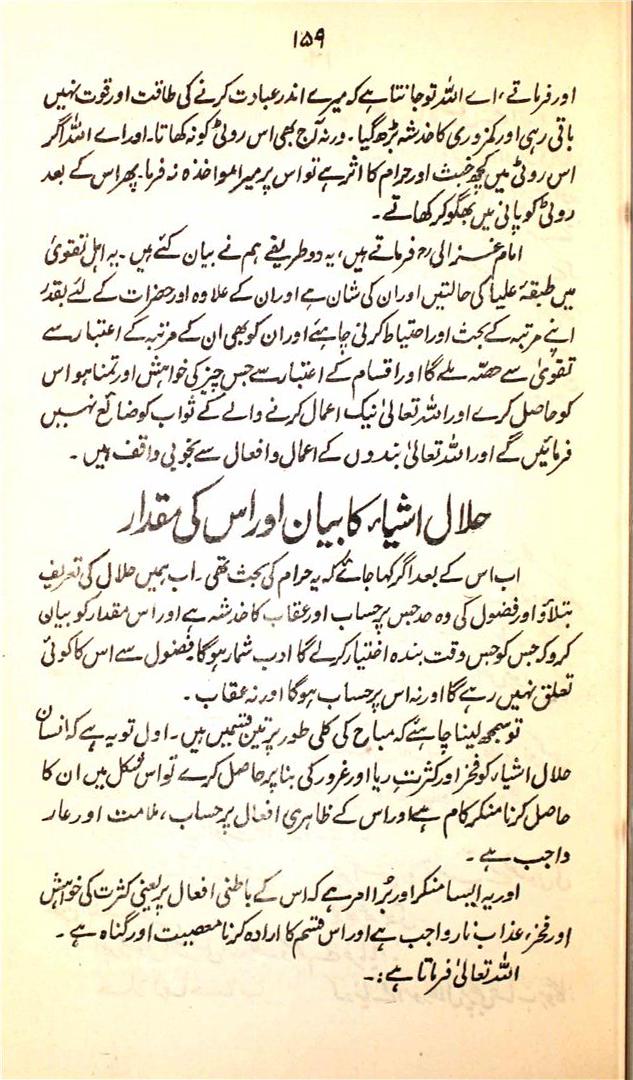 ۱۵۹
اور فرماتے، اے اللہ تو جانتا ہے کہ میرے اندر عبادت کرنے کی طاقت اور قوت نہیں
باقی رہی اور کمزوری کا خدشہ بڑھ گیا۔ ورنہ آج بھی اس روٹی کو نہ کھاتا۔ اور اے اللہ اگر
اس روٹی میں کچھ خبث اور حرام کا اثر ہے تو اس پر میرا مواخذہ نہ فرما۔ پھر اس کے بعد
روٹی کو پانی میں بھگو کر کھاتے۔
امام غزالی رح فرماتے ہیں، یہ دو طریقے ہم نے بیان کئے ہیں۔ یہ اہل تقویٰ
میں طبقۂ علیا کی حالتیں اور ان کی شان ہے اور ان کے علاوہ اور حضرات کے لئے بقدر
اپنے مرتبہ کے بحث اور احتیاط کرنی چاہئے اور ان کو بھی ان کے مرتبہ کے اعتبار سے
تقویٰ سے حصہ ملے گا اور اقسام کے اعتبار سے جس چیز کی خواہش اور تمنا ہو اس
کو حاصل کرے اور اللہ تعالیٰ نیک اعمال کرنے والے کے ثواب کو ضائع نہیں
فرمائیں گے اور اللہ تعالیٰ بندوں کے اعمال و افعال سے بخوبی واقف ہیں۔
حلال اشیاء کا بیان اور اس کی مقدار
اب اس کے بعد اگر کہا جائے کہ یہ حرام کی بحث تھی۔ اب ہمیں حلال کی تعریف
بتلاؤ اور فضول کی وہ حد جس پر حساب اور عقاب کا خدشہ ہے اور اس مقدار کو بیان
کرو کہ جس کو جس وقت بندہ اختیار کرلے گا ادب شمار ہوگا۔ فضول سے اس کا کوئی
تعلق نہیں رہے گا اور نہ اس پر حساب ہوگا اور نہ عقاب۔
تو سمجھ لینا چاہئے کہ مباح کی کلی طور پر تین قسمیں ہیں۔ اول تو یہ ہے کہ انسان
حلال اشیاء کو فخر اور کثرت ریا اور غرور کی بنا پر حاصل کرے تو اس شکل میں ان کا
حاصل کرنا منکر کام ہے اور اس کے ظاہری افعال پر حساب، ملامت اور عار
واجب ہے۔
اور یہ ایسا منکر اور بُرا امر ہے کہ اس کے باطنی افعال پر یعنی کثرت کی خواہش
اور فخر، عذاب نار واجب ہے اور اس قسم کا ارادہ کرنا معصیت اور گناہ ہے۔
اللہ تعالیٰ فرماتا ہے:۔